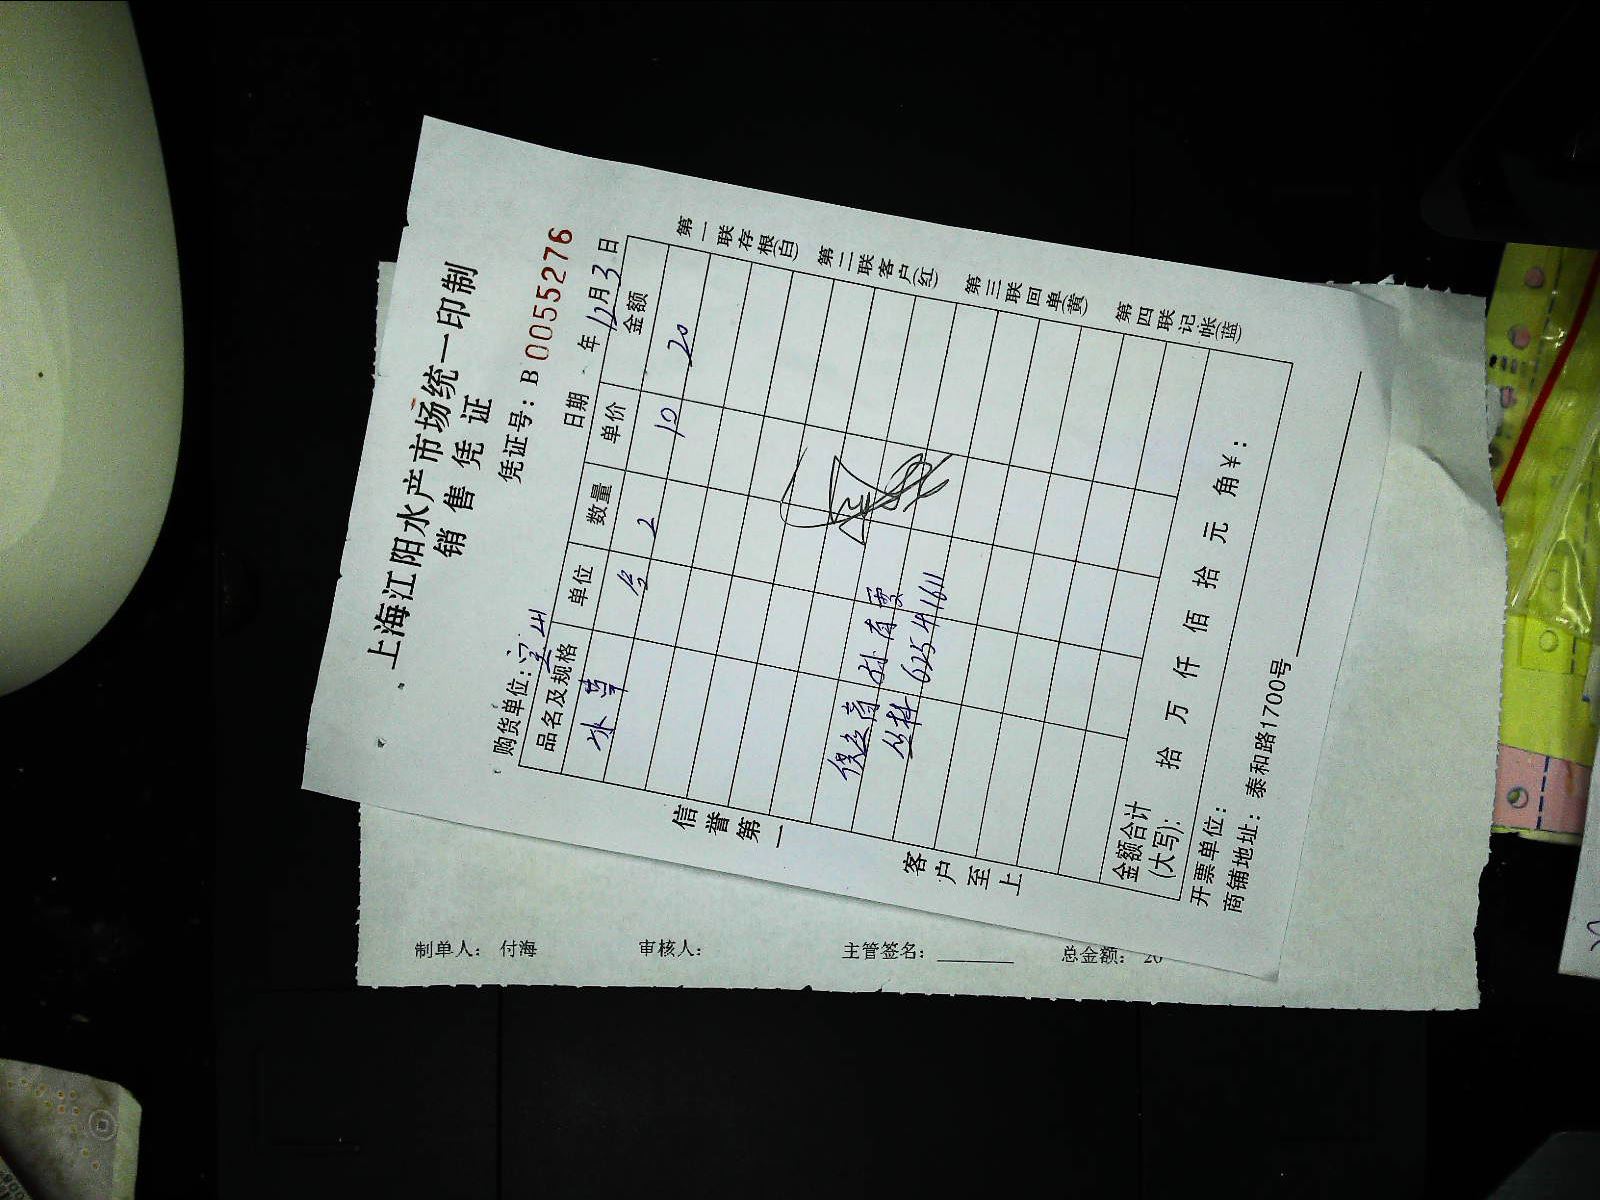 上海江阳水产市场统一印制
销售凭证
凭证号：B 0055276
购货单位：
日期 年 12月 3日
品名及规格 单位 数量 单价 金额
冰草 2 10 20
62541611
金额合计(大写)： 拾 万 仟 佰 拾 元 角￥：
开票单位：
商铺地址：泰和路1700号
信誉第一
客户至上
第一联存根(白)
第二联客户(红)
第三联回单(黄)
第四联记帐(蓝)
制单人： 付海 审核人： 主管签名： 总金额： 20